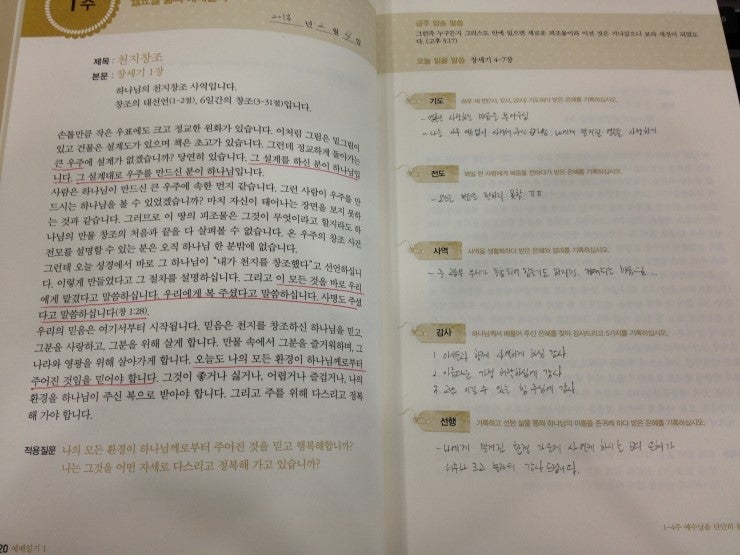 1주
2013 년 월 일
제목 : 천지창조
본문 : 창세기 1장
하나님의 천지창조 사역입니다.
창조의 대선언(1-2절), 6일간의 창조(3-31절)입니다.
손톱만큼 작은 우표에도 크고 정교한 원화가 있습니다. 이처럼 그림은 밑그림이
있고 건물은 설계도가 있으며 책은 초고가 있습니다. 그런데 정교하게 돌아가는
큰 우주에 설계가 없겠습니까? 당연히 있습니다. 그 설계를 하신 분이 하나님입
니다. 그 설계대로 우주를 만드신 분이 하나님입니다.
사람은 하나님이 만드신 큰 우주에 속한 먼지 같습니다. 그런 사람이 우주를 만
드시는 하나님을 볼 수 있었겠습니까? 마치 자신이 태어나는 장면을 보지 못하
는 것과 같습니다. 그러므로 이 땅의 피조물은 그것이 무엇이라고 할지라도 하
나님의 만물 창조의 처음과 끝을 다 살펴볼 수 없습니다. 온 우주의 창조 사건
전모를 설명할 수 있는 분은 오직 하나님 한 분밖에 없습니다.
그런데 오늘 성경에서 바로 그 하나님이 "내가 천지를 창조했다"고 선언하십니
다. 이렇게 만들었다고 그 절차를 설명하십니다. 그리고 이 모든 것을 바로 우리
에게 맡겼다고 말씀하십니다. 우리에게 복 주셨다고 말씀하십니다. 사명도 주셨
다고 말씀하십니다(창 1:28).
우리의 믿음은 여기서부터 시작됩니다. 믿음은 천지를 창조하신 하나님을 믿고,
그분을 사랑하고, 그분을 위해 살게 합니다. 만물 속에서 그분을 즐거워하며, 그
나라와 영광을 위해 살아가게 합니다. 오늘도 나의 모든 환경이 하나님께로부터
주어진 것임을 믿어야 합니다. 그것이 좋거나 싫거나, 어렵거나 즐겁거나, 나의
환경을 하나님이 주신 복으로 받아야 합니다. 그리고 주를 위해 다스리고 정복
해 가야 합니다.
적용질문 나의 모든 환경이 하나님께로부터 주어진 것을 믿고 행복해합니까?
나는 그것을 어떤 자세로 다스리고 정복해 가고 있습니까?
20 예배일기 1
금주 암송 말씀
그런즉 누구든지 그리스도 안에 있으면 새로운 피조물이라 이전 것은 지나갔으니 보라 새것이 되었도
다. (고후 5:17)
오늘 읽을 말씀 창세기 4-7장
기도 하루 세 번(7시, 12시, 22시) 기도하다 받은 은혜를 기록하십시오.
전도 매일 한 사람에게 복음을 전하다가 받은 은혜를 기록하십시오.
사역 사역을 생활화하다 받은 은혜와 결과를 기록하십시오.
감사 하나님께서 베풀어 주신 은혜를 찾아 감사드리고 5가지를 기록하십시오.
1. 함께 감사
2. 아름다운 가정 허락하심에 감사
3. 수 있는 감사
선행 거룩하고 선한 삶을 통해 하나님의 이름을 존귀케 하다 받은 은혜를 기록하십시오.
- 나에게 맡겨진 은혜가
너무나 크고 감사 드립니다.
1-4주 예수님을 단단히